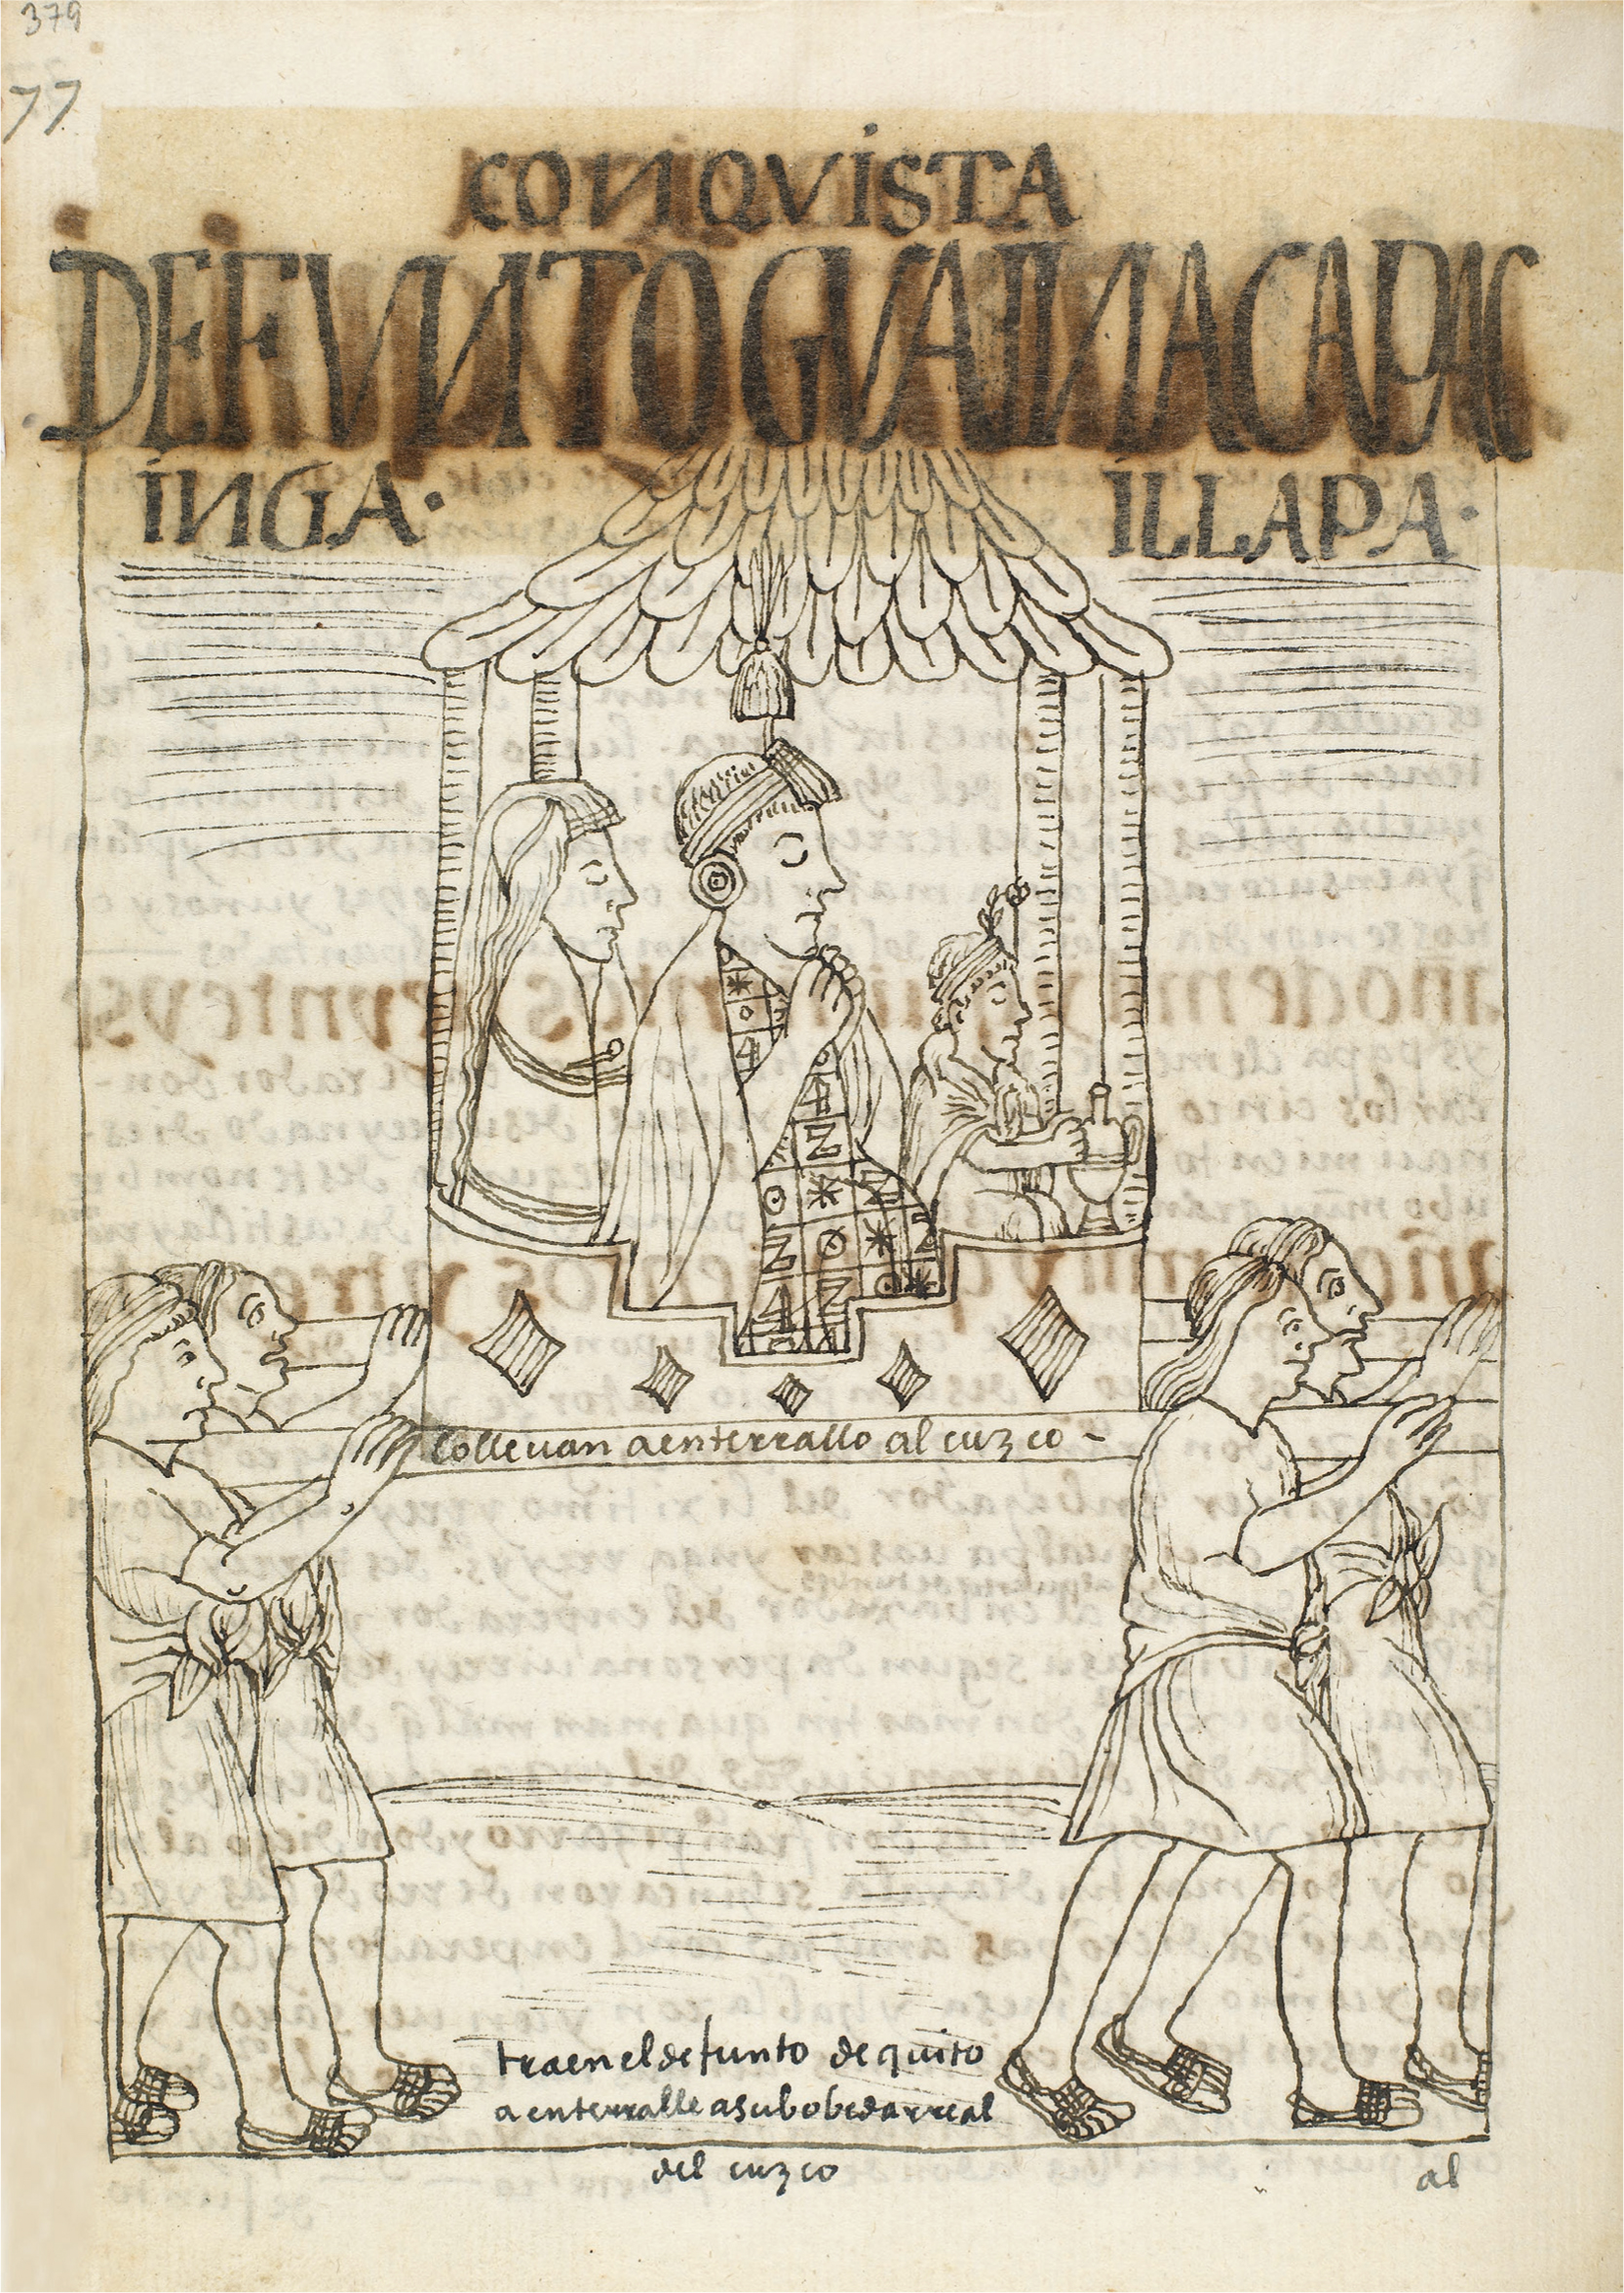 379
77
CONQVISTA
DEFVNTO GVAINACAPAC
INGA·
ILLAPA·
lo lleuan a enterrallo al cuzco -
traen el defunto de quito
a enterralle a su bobeda rreal
del cuzco
al